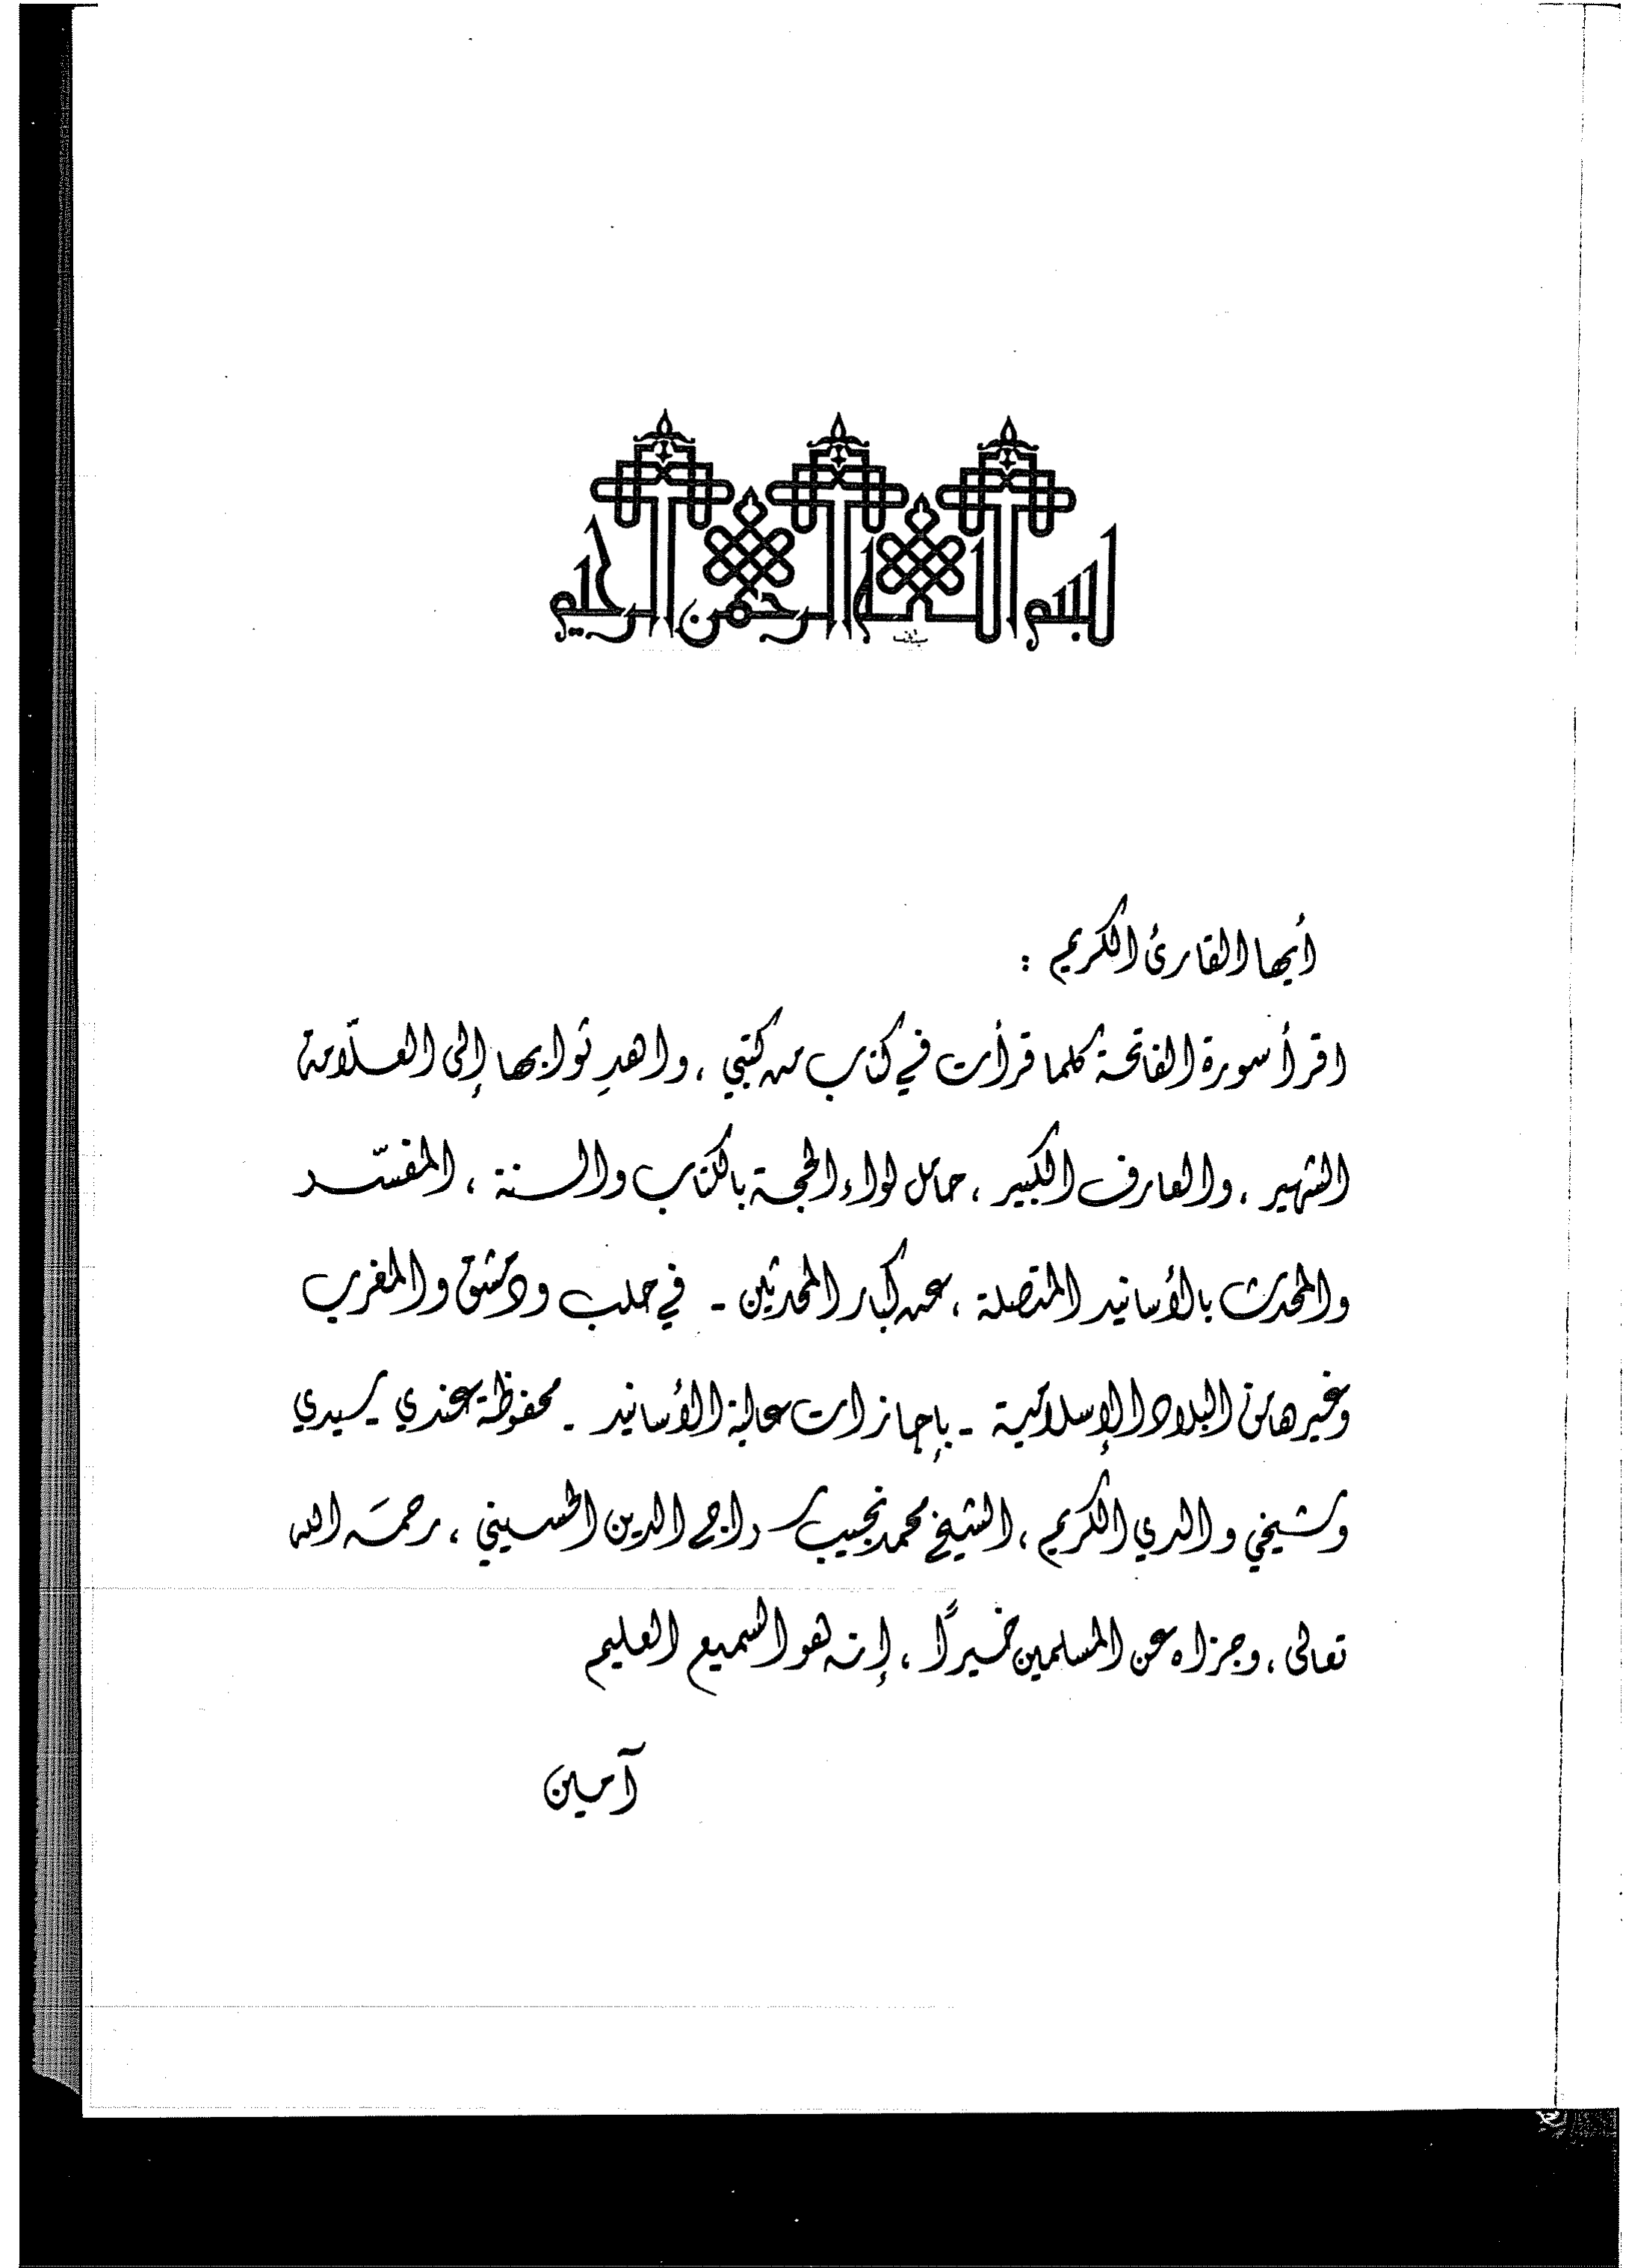 بسم الله الرحمن الرحيم
أيها القارئ الكريم :
اقرأ سورة الفاتحة كلما قرأت في كتاب من كتبي ، واهدِ ثوابها إلى العلّامة
الشهير ، والعارف الكبير ، حامل لواء الحجة بالكتاب والسنة ، المفسّر
والمحدث بالأسانيد المتصلة ، عن كبار المحدثين - في حلب ودمشق والمغرب
وغيرها من البلاد الإسلامية - بإجازات عالية الأسانيد - محفوظة عندي سيدي
وشيخي والدي الكريم ، الشيخ محمد نجيب سراج الدين الحسيني ، رحمه الله
تعالى ، وجزاه عن المسلمين خيراً ، إنه هو السميع العليم
آمين